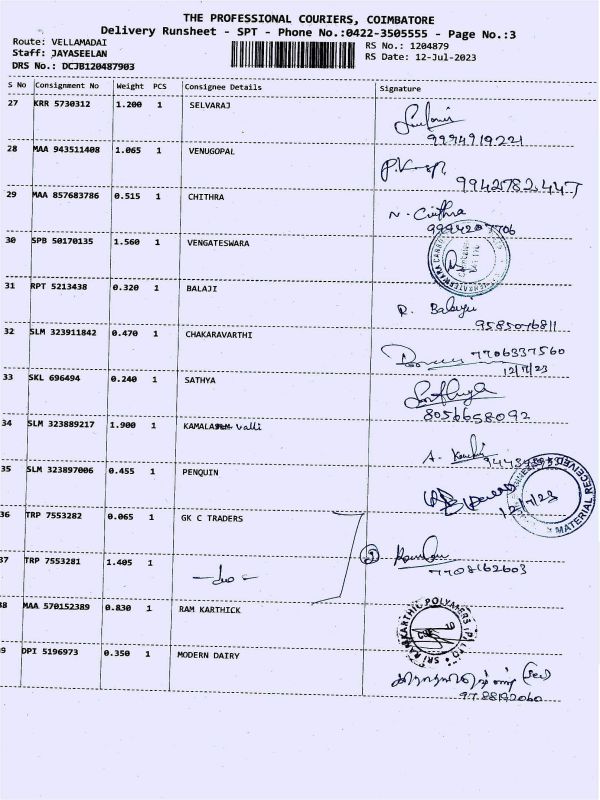 THE PROFESSIONAL COURIERS, COIMBATORE
Delivery Runsheet - SPT - Phone No.:0422-3505555 - Page No.:3
Route: VELLAMADAI
RS No.: 1204879
Staff: JAYASEELAN
RS Date: 12-Jul-2023
DRS No.: DCJB120487903
S No Consignment No Weight PCS Consignee Details Signature
27 KRR 5730312 1.200 1 SELVARAJ
9994919221
28 MAA 943511408 1.065 1 VENUGOPAL
9942782447
29 MAA 857683786 0.515 1 CHITHRA N. Chithra
9994207706
30 SPB 50170135 1.560 1 VENGATESWARA
31 RPT 5213438 0.320 1 BALAJI R. Balaji
9585076811
32 SLM 323911842 0.470 1 CHAKARAVARTHI 7706337560
12/7/23
33 SKL 696494 0.240 1 SATHYA Sathya
8056658092
34 SLM 323889217 1.900 1 KAMALA Valli
35 SLM 323897006 0.455 1 PENQUIN
12/7/23
MATERIAL RECEIVED
36 TRP 7553282 0.065 1 GK C TRADERS
37 TRP 7553281 1.405 1 -do-
7708162603
38 MAA 570152389 0.830 1 RAM KARTHICK
SRI RAMKARTHIC POLYMERS
39 DPI 5196973 0.350 1 MODERN DAIRY